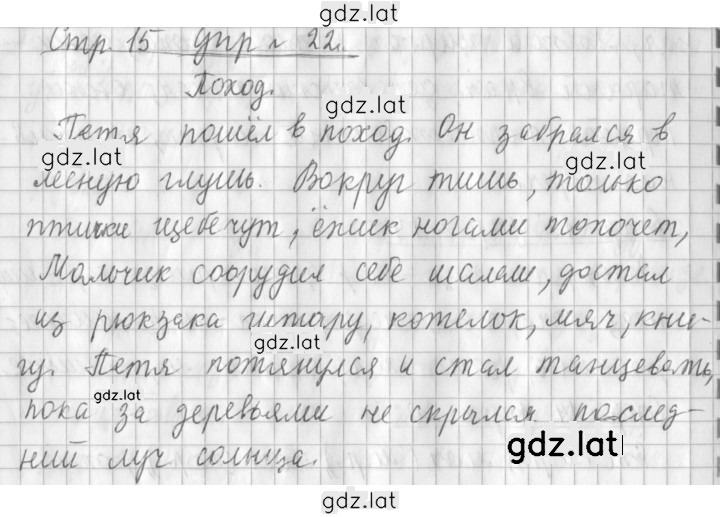 gdz.lat
Стр. 15 упр № 22.
Поход.
gdz.lat
Петя пошёл в поход. Он забрался в
gdz.lat
gdz.lat
лесную глушь. Вокруг тишь, только
птички щебечут, ёжик ногами топочет,
Мальчик соорудил себе шалаш, достал
из рюкзака гитару, котелок, мяч, кни-
gdz.lat
гу. Петя потянулся и стал танцевать,
gdz.lat
пока за деревьями не скрылся послед-
ний луч солнца.
gdz.lat
gdz.lat